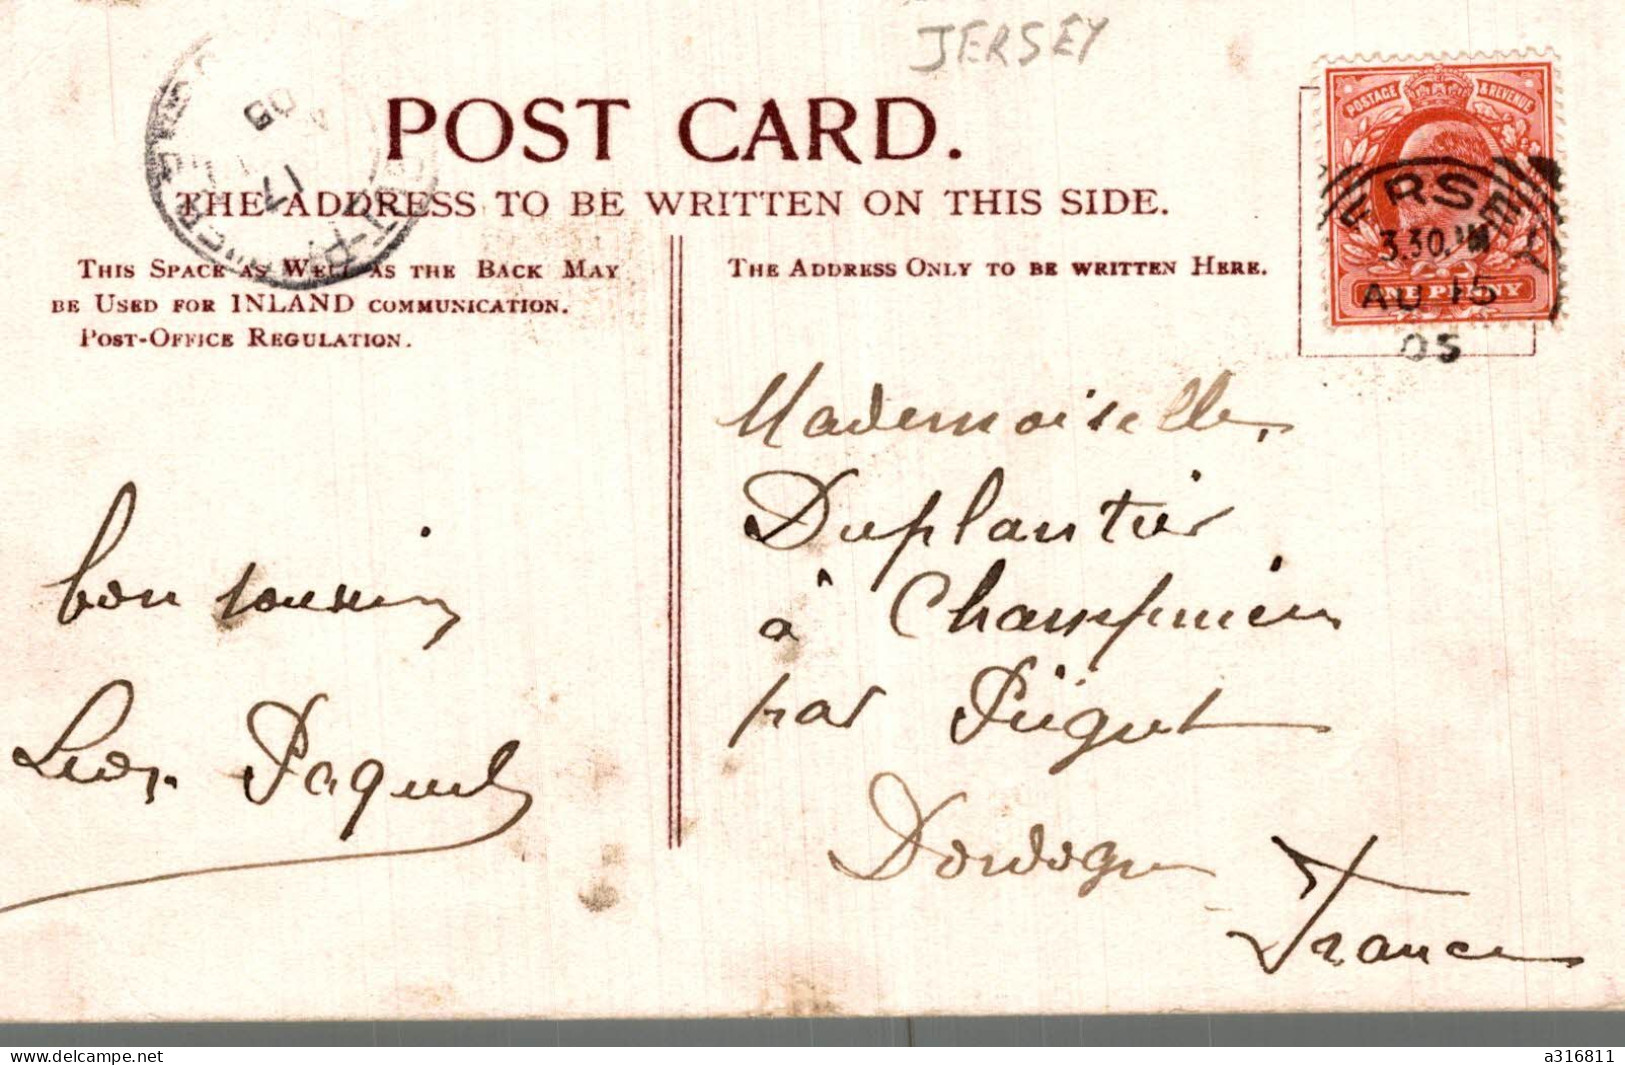 JERSEY
POST CARD.
THE ADDRESS TO BE WRITTEN ON THIS SIDE.
THIS SPACE AS WELL AS THE BACK MAY
BE USED FOR INLAND COMMUNICATION.
POST-OFFICE REGULATION.
THE ADDRESS ONLY TO BE WRITTEN HERE.
POSTAGE & REVENUE
ONE PENNY
JERSEY
3.30 PM
AU 15
05
17
05
bon souvenir
Léon Paquet
Mademoiselle
Duplantier
à Champniers
par Piégut
Dordogne
France
www.delcampe.net
a316811